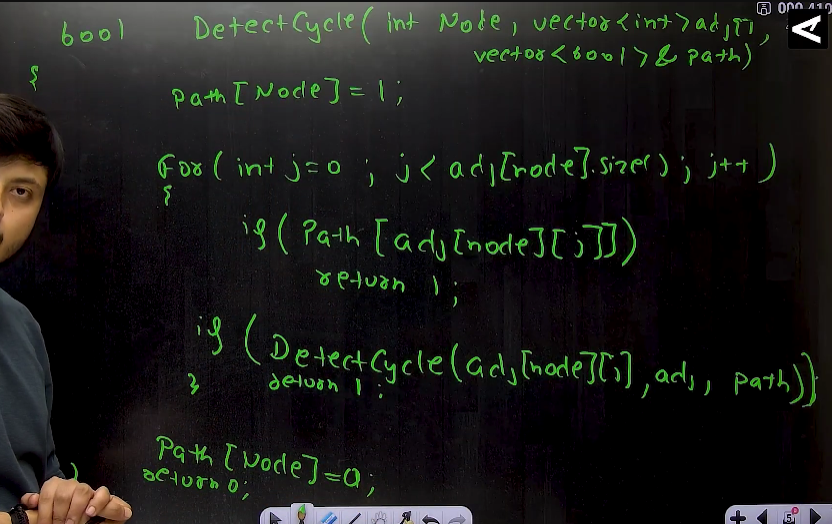 bool DetectCycle( int Node, vector<int>adj[],
vector<bool>& path)
{
Path[Node]=1;
For( int j=0 ; j< adj[node].size(); j++ )
{
if( Path[adj[node][j]])
return 1;
if (DetectCycle(adj[node][j], adj, path))
return 1;
}
Path[Node]=0;
return 0;
}